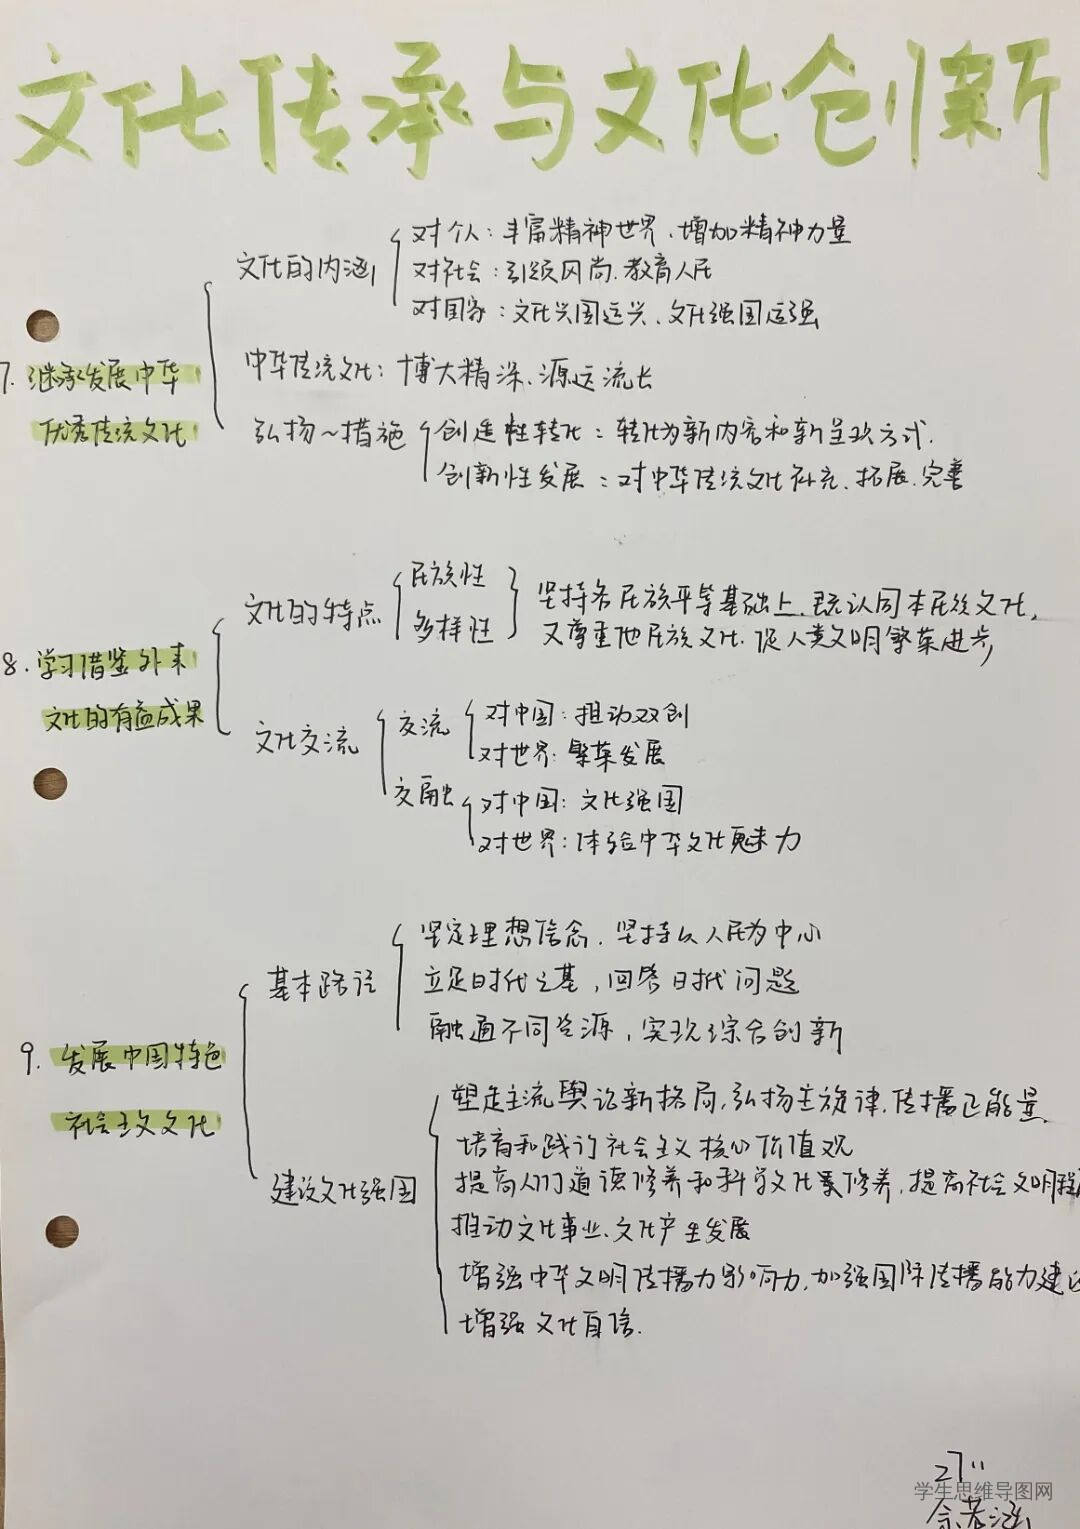 文化传承与文化创新
7. 继承发展中华
优秀传统文化
文化的内涵
对个人：丰富精神世界、增加精神力量
对社会：引领风尚、教育人民
对国家：文化兴国运兴、文化强国运强
中华传统文化：博大精深、源远流长
弘扬~措施
创造性转化：转化为新内容和新呈现方式.
创新性发展：对中华传统文化补充、拓展、完善
8. 学习借鉴外来
文化的有益成果
文化的特点
民族性
多样性
坚持各民族平等基础上、既认同本民族文化,
又尊重他民族文化、促人类文明繁荣进步
文化交流
交流
对中国：推动双创
对世界：繁荣发展
交融
对中国：文化强国
对世界：体验中华文化魅力
9. 发展中国特色
社会主义文化
基本路径
坚定理想信念、坚持以人民为中心
立足时代之基，回答时代问题
融通不同资源，实现综合创新
建设文化强国
塑造主流舆论新格局,弘扬主旋律,传播正能量
培育和践行社会主义核心价值观
提高人们道德修养和科学文化素修养,提高社会文明程
推动文化事业、文化产生发展
增强中华文明传播力影响力,加强国际传播能力建
增强文化自信.
2711
学生思维导图网